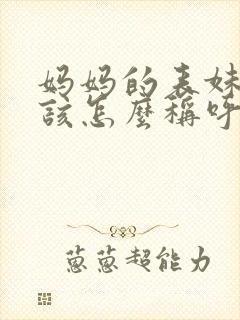 妈妈的表妹
該怎麼稱呼
蔥蔥超能力